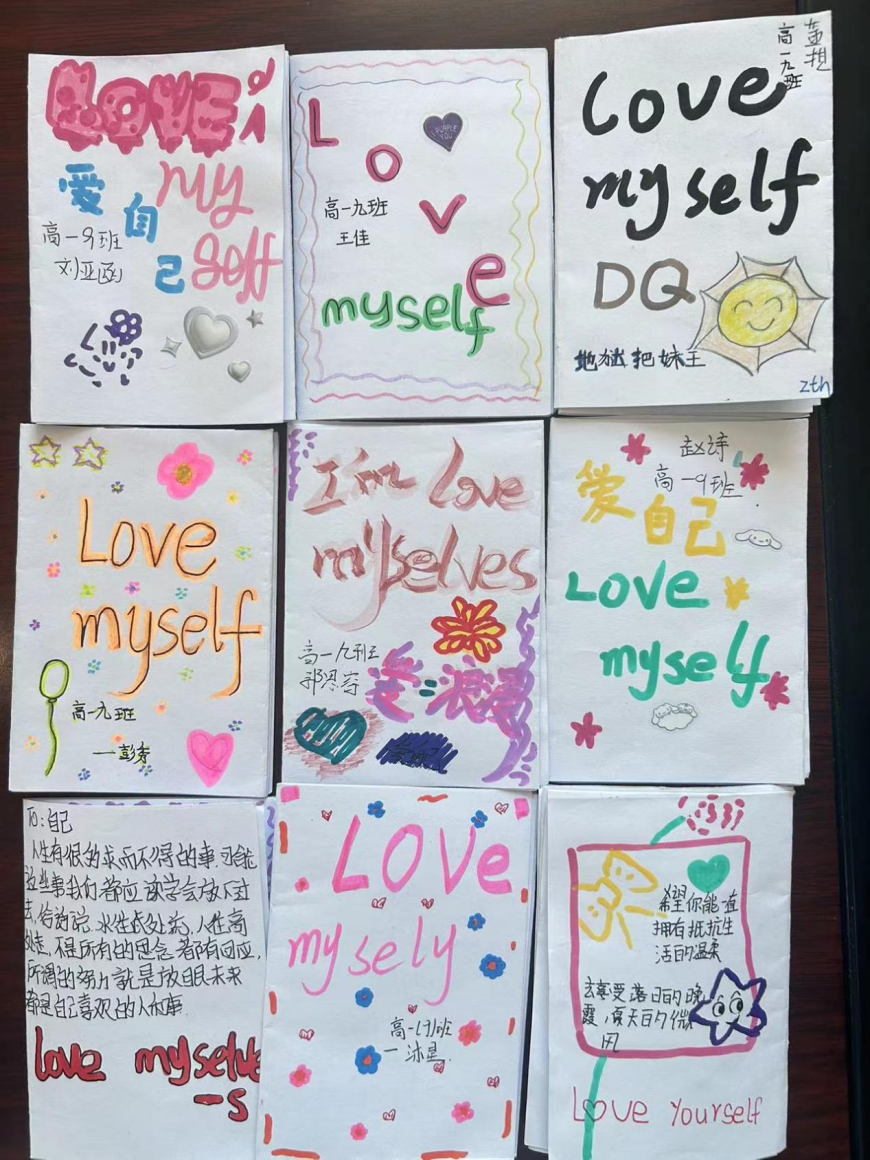 LOVE
爱自己
my
self
高一9班
刘亚函
LOVe
PURPLE
YOU
高一九班
王佳
myself
高一九班
Love
myself
DQ
地狱把妹王
zth
Love
myself
高一九班
一彭
I'm love
myselves
高一九班
赵诗
高一9班
爱自己
LOVe
myself
To:自己
人生有很多求而不得的事,可能
这些事我们都应该学会放下过
去,俗话说,水往低处流,人往高
处走,不是所有的思念都有回应,
所谓的努力就是放眼未来
都是自己喜欢的人和事
love myselve
-S
LOVe
mysely
高一九班
一沐星.
希望你能一直
拥有抵抗生
活的温柔
去享受落日的晚
霞,夏天的微
风
Love Yourself